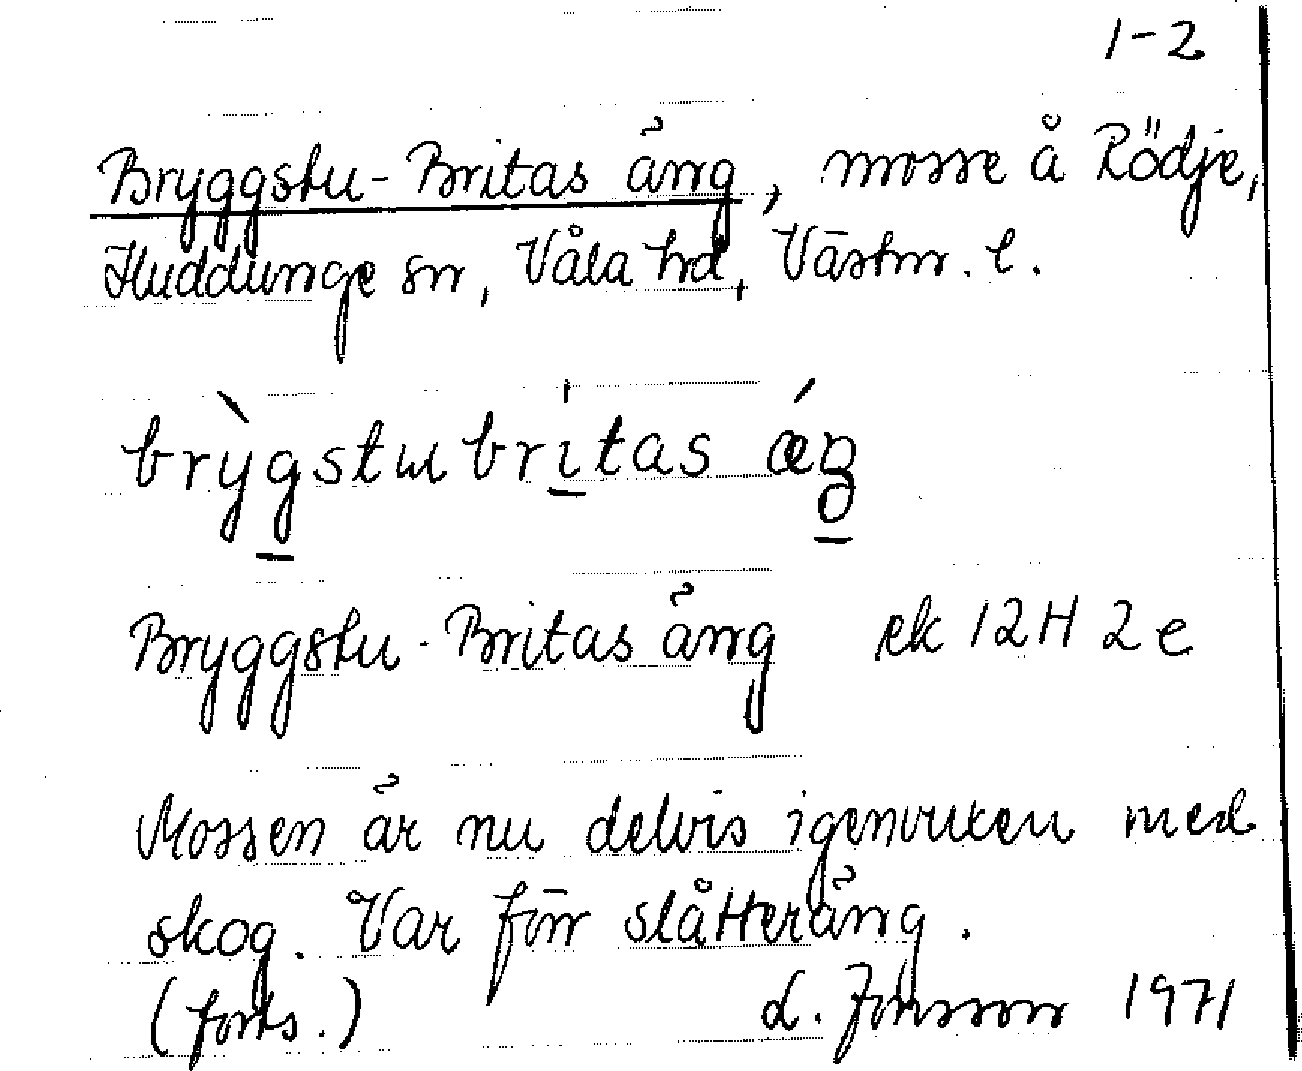 1-2
Bryggstu-Britas äng, mosse å Rödje,
Huddunge sn, Våla hd, Västm. l.
brỳgstubritas ǽŋ
Bryggstu-Britas äng ek 12H 2e
Mossen är nu delvis igenvuxen med
skog. Var förr slåtteräng.
(forts.) L. Jonsson 1971